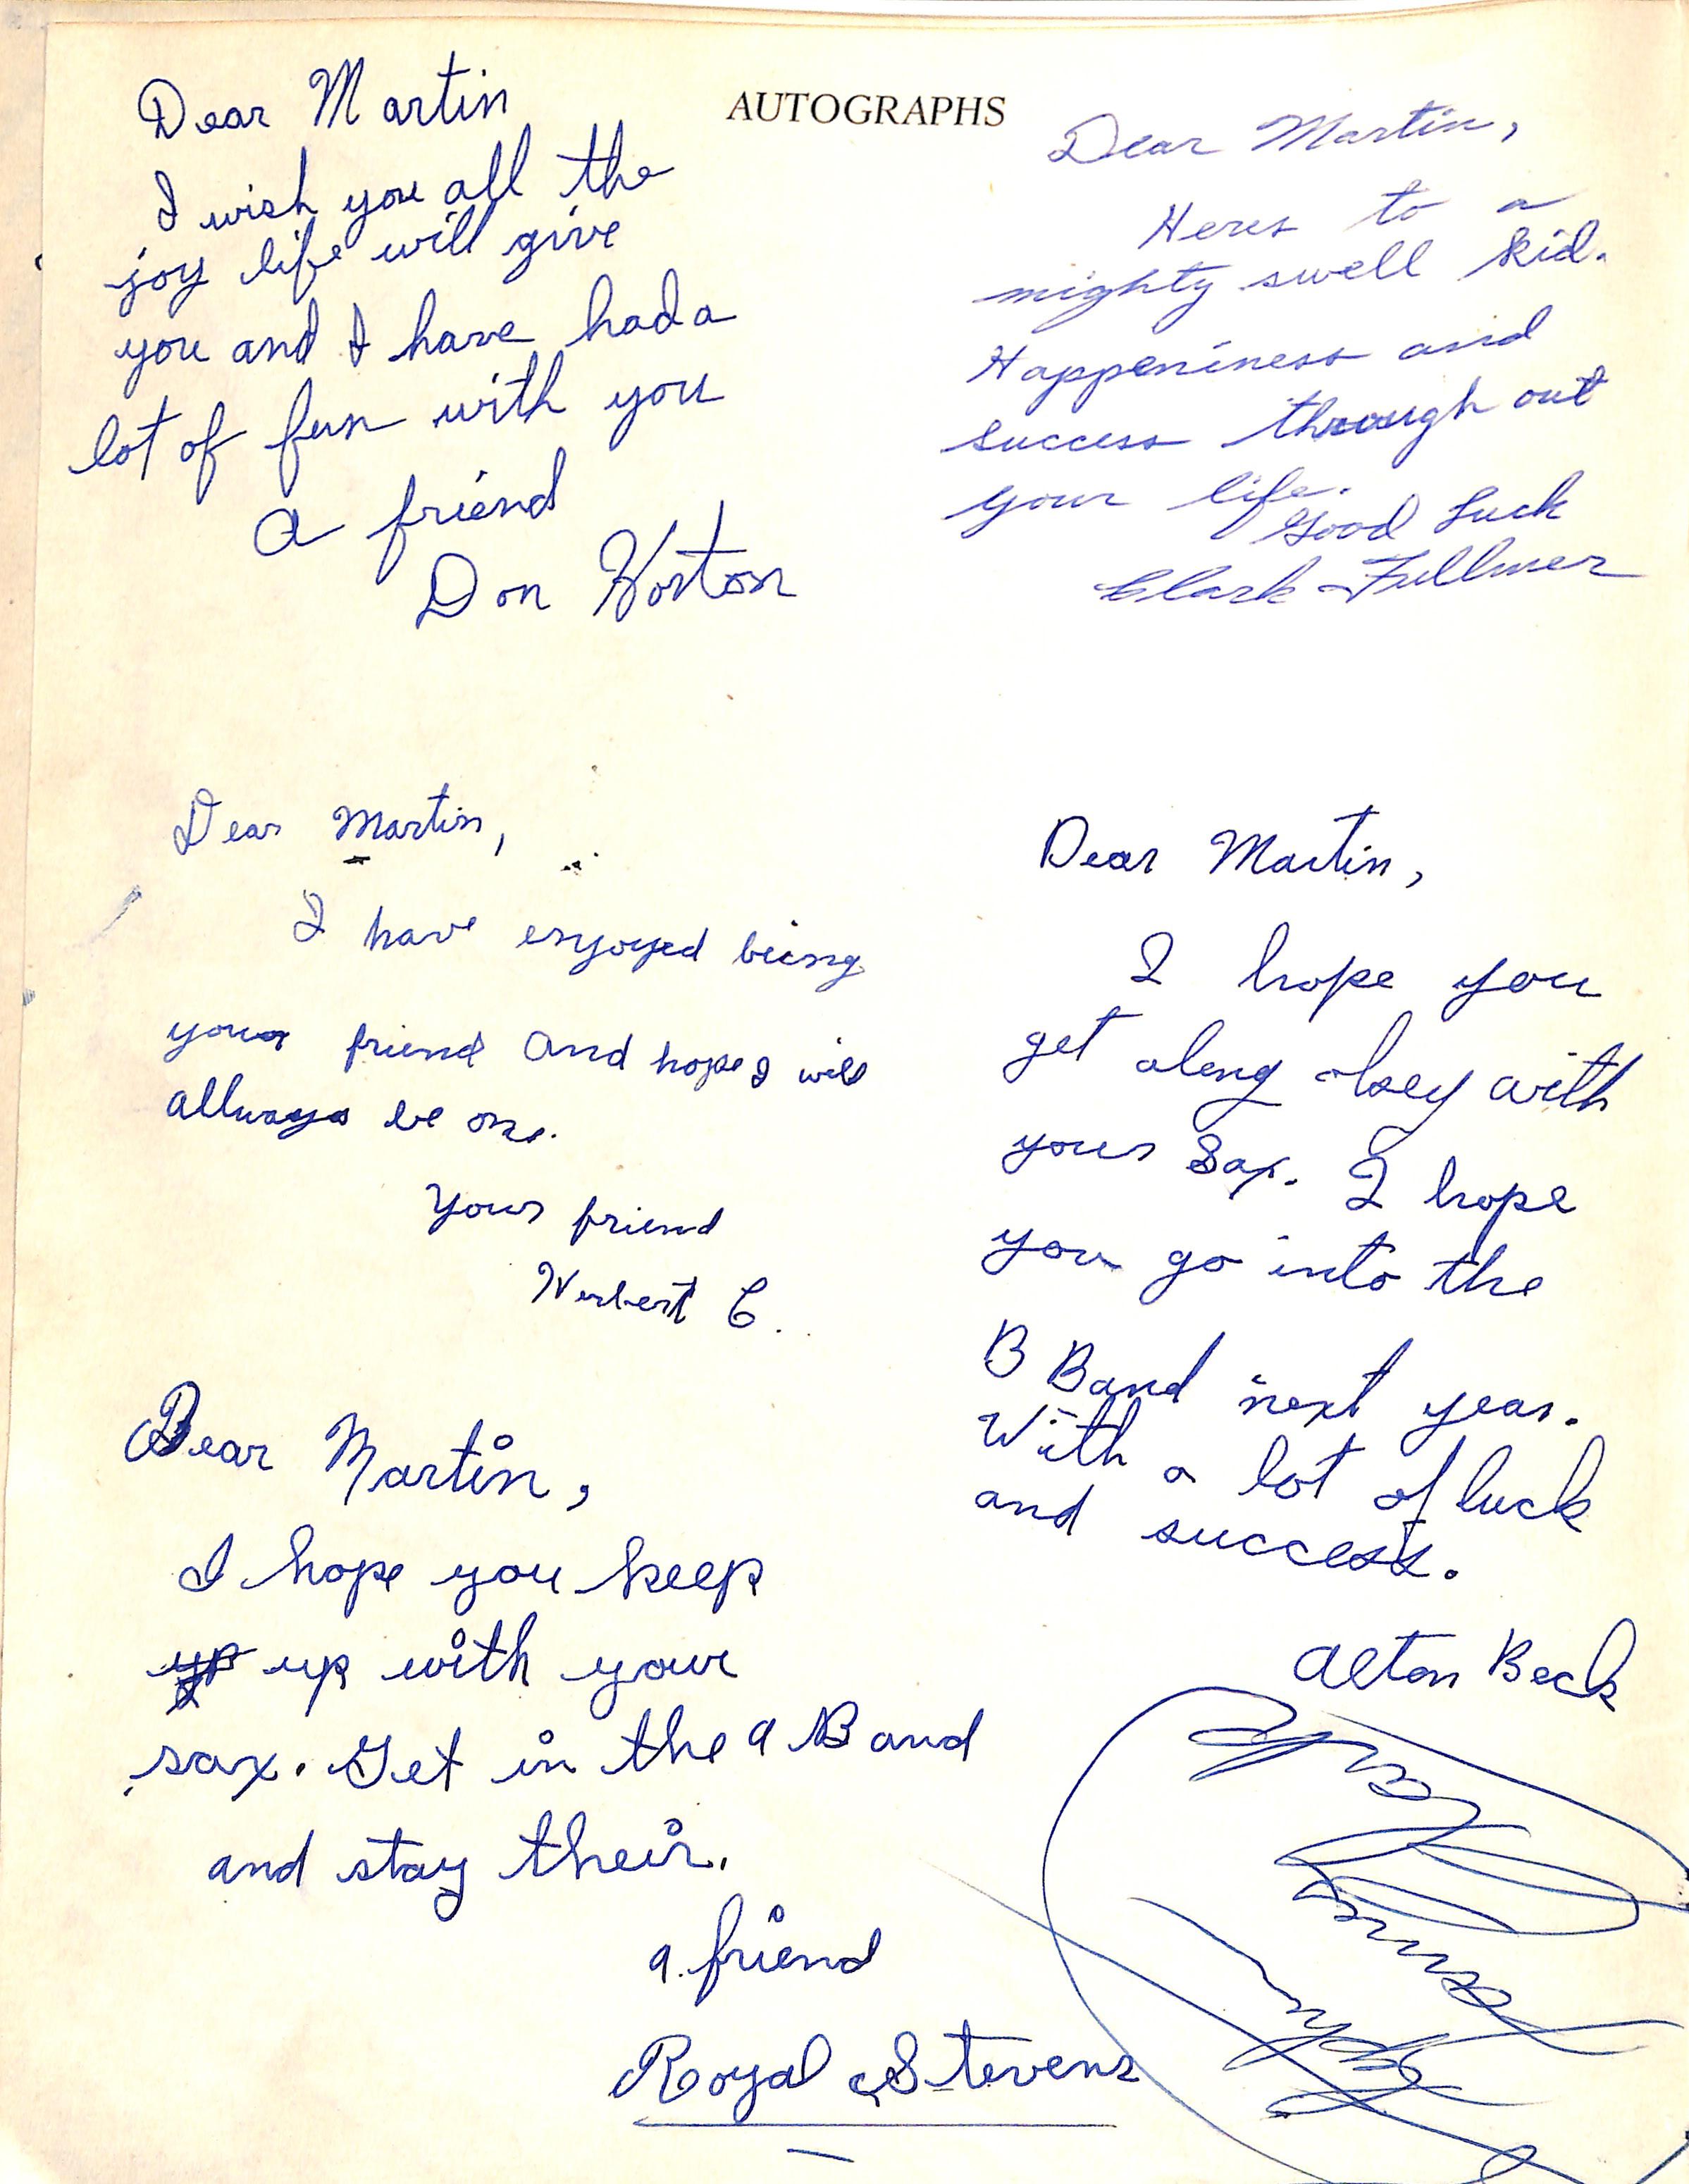 AUTOGRAPHS
Dear Martin
I wish you all the
joy life will give
you and I have had a
lot of fun with you
a friend
Don
Dear Martin,
Heres to a
mighty swell kid.
Happeniness and
success through out
your life.
Good Luck
Clark Fullmer
Dear Martin,
I have enjoyed being
your friend and hope I will
allways be one.
Your friend
C.
Dear Martin,
I hope you
get along okey with
your Sax. I hope
you go into the
B Band next year.
With a lot of luck
and success.
Alton Beck
Dear Martin,
I hope you keep
up with your
sax. Get in the a Band
and stay their.
a friend
Royal Stevens